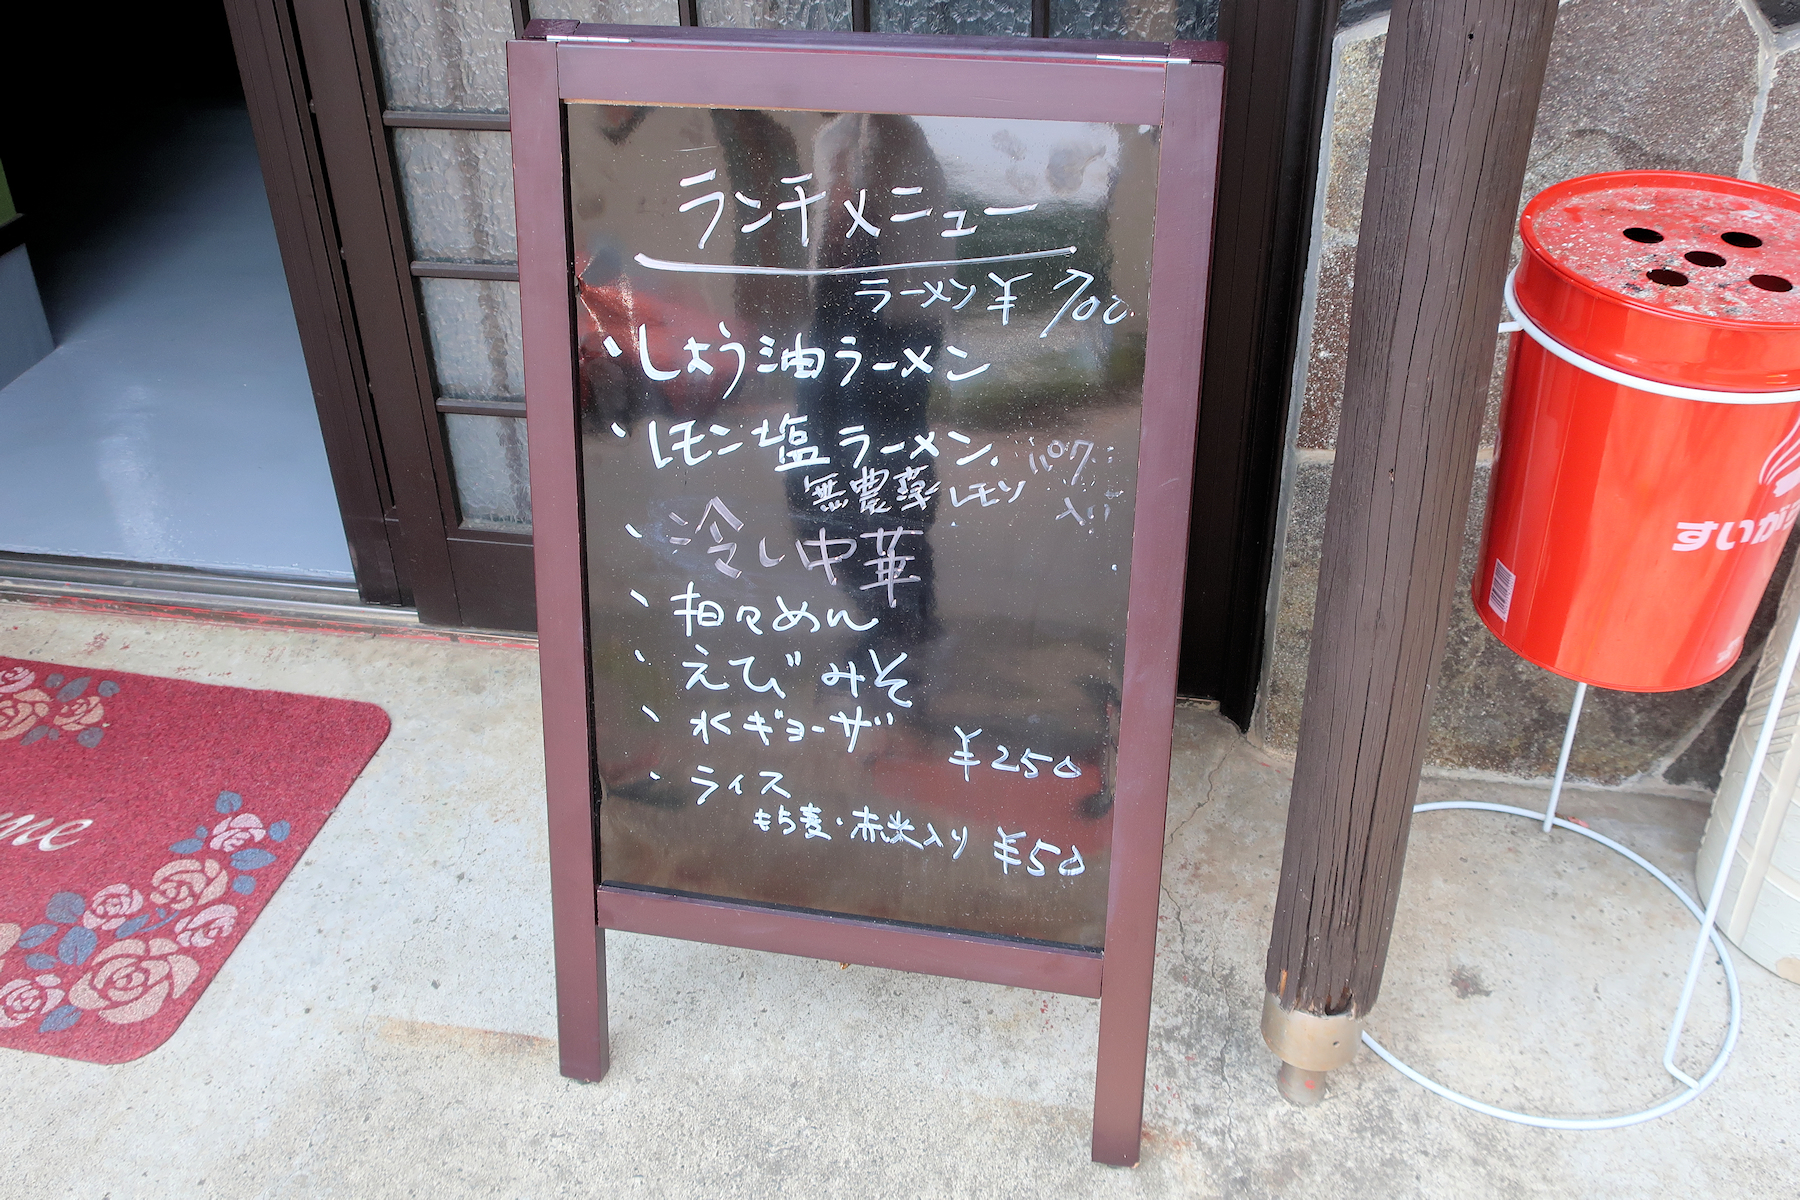 ランチメニュー
ラーメン ¥700
・しょう油ラーメン
・レモン塩ラーメン
無農薬レモン
パクチー入り
・冷し中華
・担々めん
・えびみそ
・水ギョーザ ¥250
・ライス
もち麦・赤米入り ¥50
すいがら
me